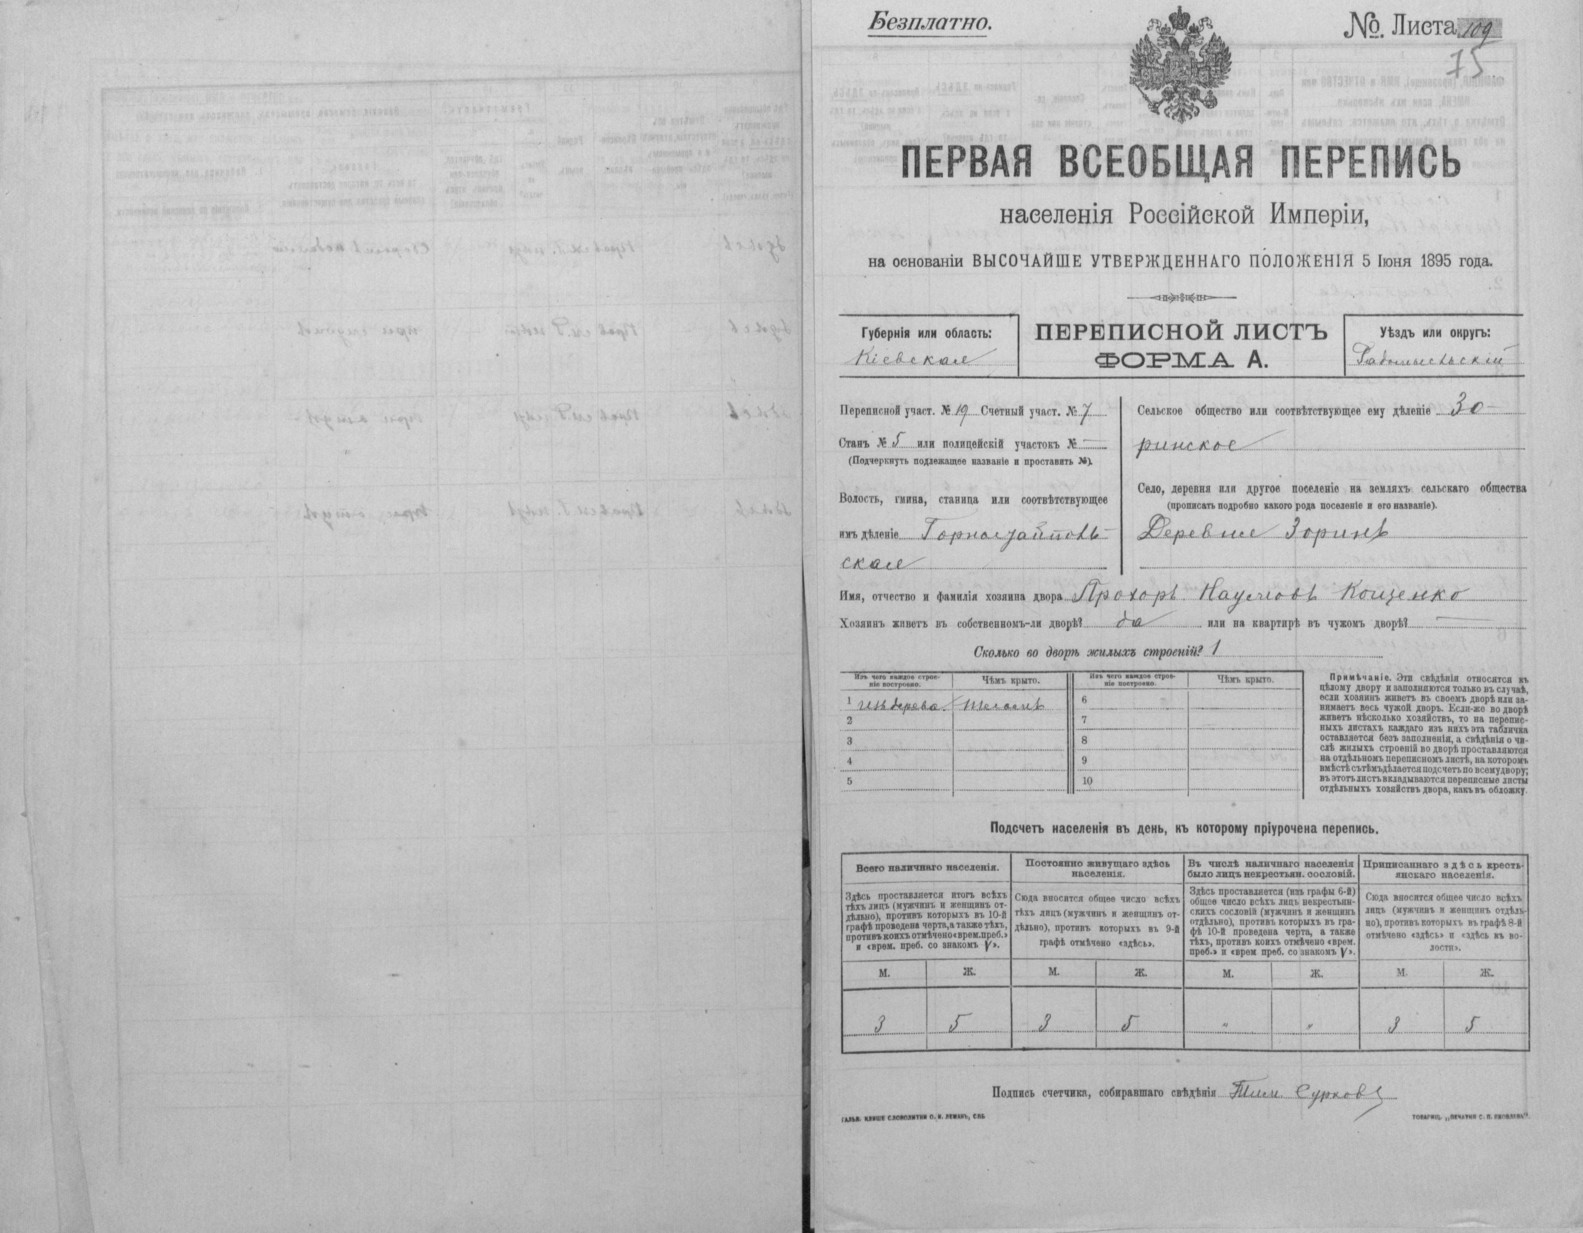 Безплатно.
№. Листа 109
75
ПЕРВАЯ ВСЕОБЩАЯ ПЕРЕПИСЬ
населенія Россійской Имперіи,
на основаніи ВЫСОЧАЙШЕ УТВЕРЖДЕННАГО ПОЛОЖЕНІЯ 5 Іюня 1895 года.
Губернія или область:
Кіевская
ПЕРЕПИСНОЙ ЛИСТЪ
ФОРМА А.
Уѣздъ или округъ:
Радомысльскій
Переписной участ. № 19 Счетный участ. № 7
Станъ № 5 или полицейскій участокъ № —
(Подчеркнуть подлежащее названіе и проставить №).
Волость, гмина, станица или соотвѣтствующее
имъ дѣленіе Горностайполь-
ская
Сельское общество или соотвѣтствующее ему дѣленіе Зо-
ринское
Село, деревня или другое поселеніе на земляхъ сельскаго общества
(прописать подробно какого рода поселеніе и его названіе).
Деревня Зоринъ
Имя, отчество и фамилія хозяина двора Прохоръ Наумовъ Кощенко
Хозяинъ живетъ въ собственномъ-ли дворѣ? да или на квартирѣ въ чужомъ дворѣ? —
Сколько во дворѣ жилыхъ строеній? 1
Изъ чего каждое строе-
ніе построено.
Чѣмъ крыто.
Изъ чего каждое строе-
ніе построено.
Чѣмъ крыто.
1 изъ дерева
6
2
7
3
8
4
9
5
10
Примѣчаніе. Эти свѣдѣнія относятся къ
цѣлому двору и заполняются только въ случаѣ,
если хозяинъ живетъ въ своемъ дворѣ или за-
нимаетъ весь чужой дворъ. Если-же во дворѣ
живетъ нѣсколько хозяйствъ, то на перепис-
ныхъ листахъ каждаго изъ нихъ эта табличка
оставляется безъ заполненія, а свѣдѣнія о чи-
слѣ жилыхъ строеній во дворѣ проставляются
на отдѣльномъ переписномъ листѣ, на которомъ
вмѣстѣ съ тѣмъ дѣлается подсчетъ по всему двору;
въ этотъ листъ вкладываются переписные листы
отдѣльныхъ хозяйствъ двора, какъ въ обложку.
Подсчетъ населенія въ день, къ которому пріурочена перепись.
Всего наличнаго населенія.
Здѣсь проставляется итогъ всѣхъ
тѣхъ лицъ (мужчинъ и женщинъ от-
дѣльно), противъ которыхъ въ 10-й
графѣ проведена черта, а также тѣхъ,
противъ коихъ отмѣчено «врем. преб.»
и «врем. преб. со знакомъ V».
Постоянно живущаго здѣсь
населенія.
Сюда вносится общее число всѣхъ
тѣхъ лицъ (мужчинъ и женщинъ от-
дѣльно), противъ которыхъ въ 9-й
графѣ отмѣчено «здѣсь».
Въ числѣ наличнаго населенія
было лицъ некрестьян. сословій.
Здѣсь проставляется (изъ графы 6-й)
общее число всѣхъ лицъ некрестьян-
скихъ сословій (мужчинъ и женщинъ
отдѣльно), противъ которыхъ въ гра-
фѣ 10-й проведена черта, а также
тѣхъ, противъ коихъ отмѣчено «врем.
преб.» и «врем преб. со знакомъ V».
Приписаннаго здѣсь кресть-
янскаго населенія.
Сюда вносится общее число всѣхъ
лицъ (мужчинъ и женщинъ отдѣль-
но), противъ которыхъ въ графѣ 8-й
отмѣчено «здѣсь» и «здѣсь въ во-
лости».
М. Ж. М. Ж. М. Ж. М. Ж.
3 5 3 5 " " 3 5
Подпись счетчика, собиравшаго свѣдѣнія Тим. Сурковъ
ГАЛЬВ. КЛИШЕ СЛОВОЛИТНИ О. И. ЛЕМАНЪ, СПБ
ТОВАРИЩ. „ПЕЧАТНЯ С. П. ЯКОВЛЕВА".